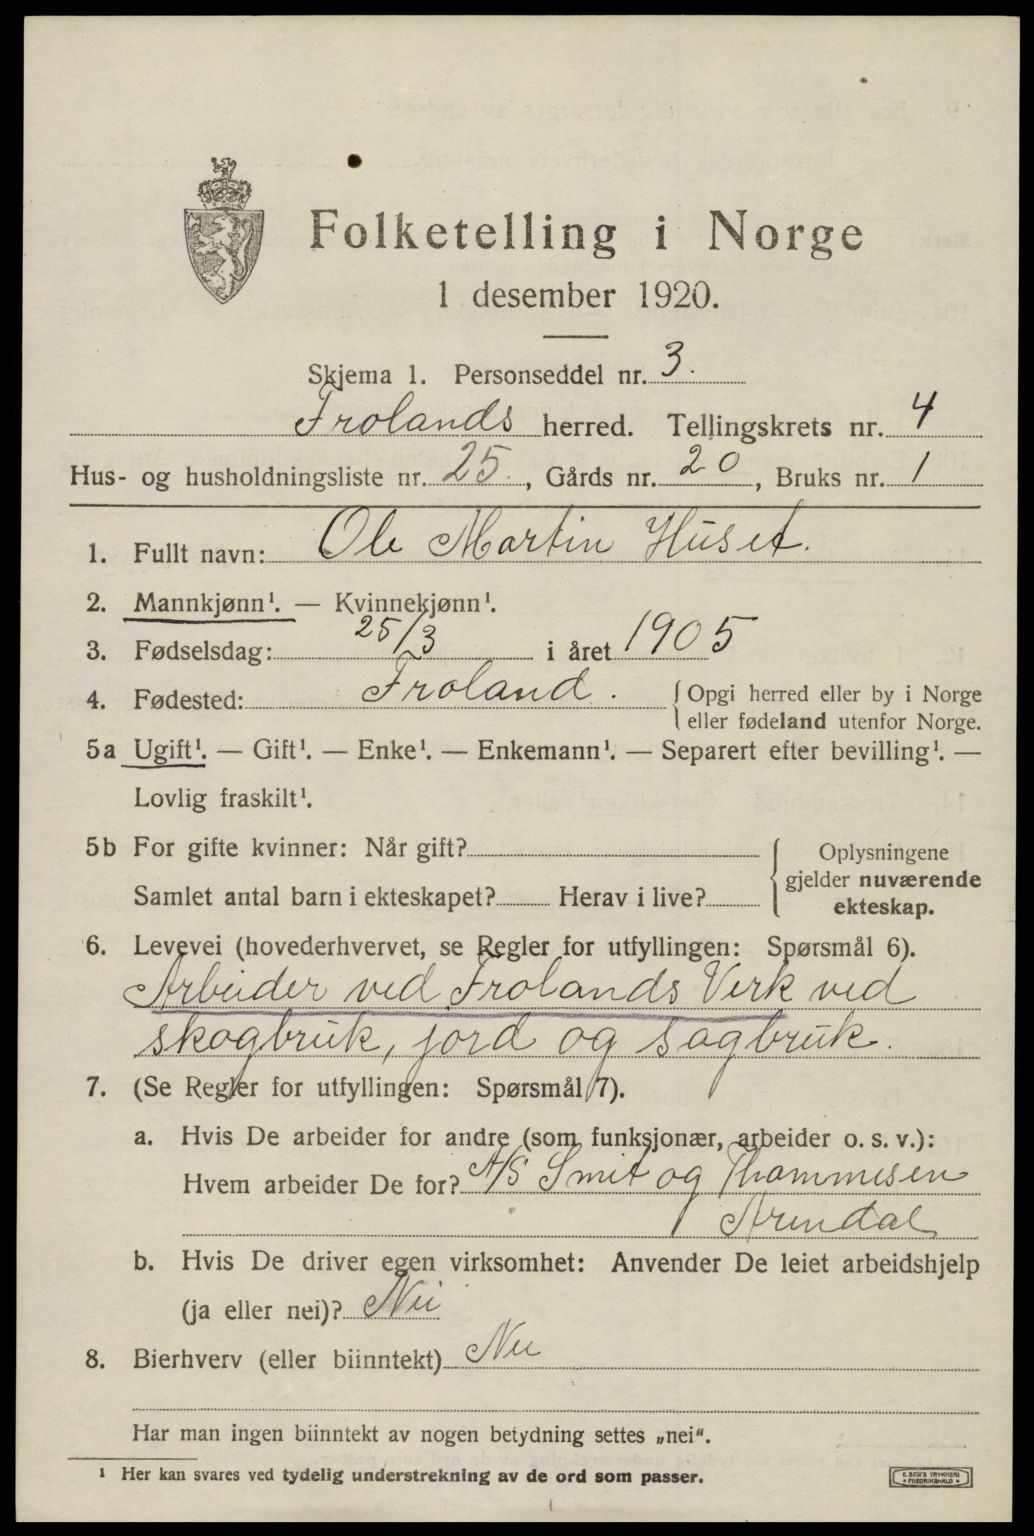 Folketelling i Norge
1 desember 1920.
Skjema 1. Personseddel nr. 3.
Frolands herred. Tellingskrets nr. 4
Hus- og husholdningsliste nr. 25., Gårds nr. 20, Bruks nr. 1
1. Fullt navn: Ole Martin Huset.
2. Mannkjønn¹. — Kvinnekjønn¹.
3. Fødselsdag: 25/3 i året 1905
4. Fødested: Froland. Opgi herred eller by i Norge
eller fødeland utenfor Norge.
5a Ugift¹. — Gift¹. — Enke¹. — Enkemann¹. — Separert efter bevilling¹. —
Lovlig fraskilt¹.
5b For gifte kvinner: Når gift?
Samlet antal barn i ekteskapet? Herav i live?
Oplysningene
gjelder nuværende
ekteskap.
6. Levevei (hovederhvervet, se Regler for utfyllingen: Spørsmål 6).
Arbeider ved Frolands Verk ved
skogbruk, jord og sagbruk.
7. (Se Regler for utfyllingen: Spørsmål 7).
a. Hvis De arbeider for andre (som funksjonær, arbeider o. s. v.):
Hvem arbeider De for? A/S Smit og Thommesen
Arendal
b. Hvis De driver egen virksomhet: Anvender De leiet arbeidshjelp
(ja eller nei)? Nei
8. Bierhverv (eller biinntekt) Nei
Har man ingen biinntekt av nogen betydning settes „nei".
¹ Her kan svares ved tydelig understrekning av de ord som passer.
E. SEM'S TRYKKERI
FREDRIKSHALD